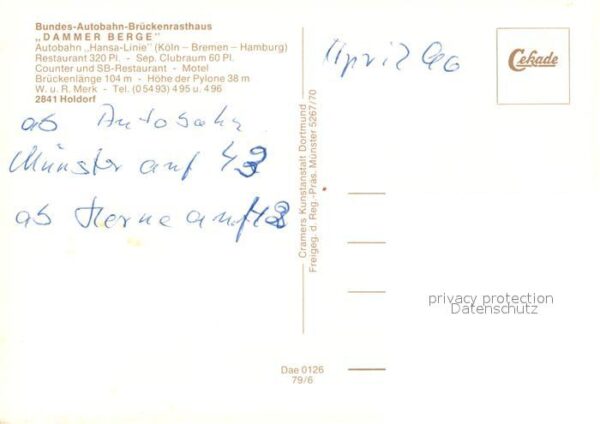 Bundes-Autobahn-Brückenrasthaus
„DAMMER BERGE"
Autobahn „Hansa-Linie" (Köln – Bremen – Hamburg)
Restaurant 320 Pl. - Sep. Clubraum 60 Pl.
Counter und SB-Restaurant - Motel
Brückenlänge 104 m - Höhe der Pylone 38 m
W. u. R. Merk - Tel. (05493) 495 u. 496
2841 Holdorf
ab Autobahn
Münster auf 43
ab Herne auf
April 90
Cekade
Cramers Kunstanstalt Dortmund
Freigeg. d. Reg.-Präs. Münster 5267/70
privacy protection
Datenschutz
Dae 0126
79/6